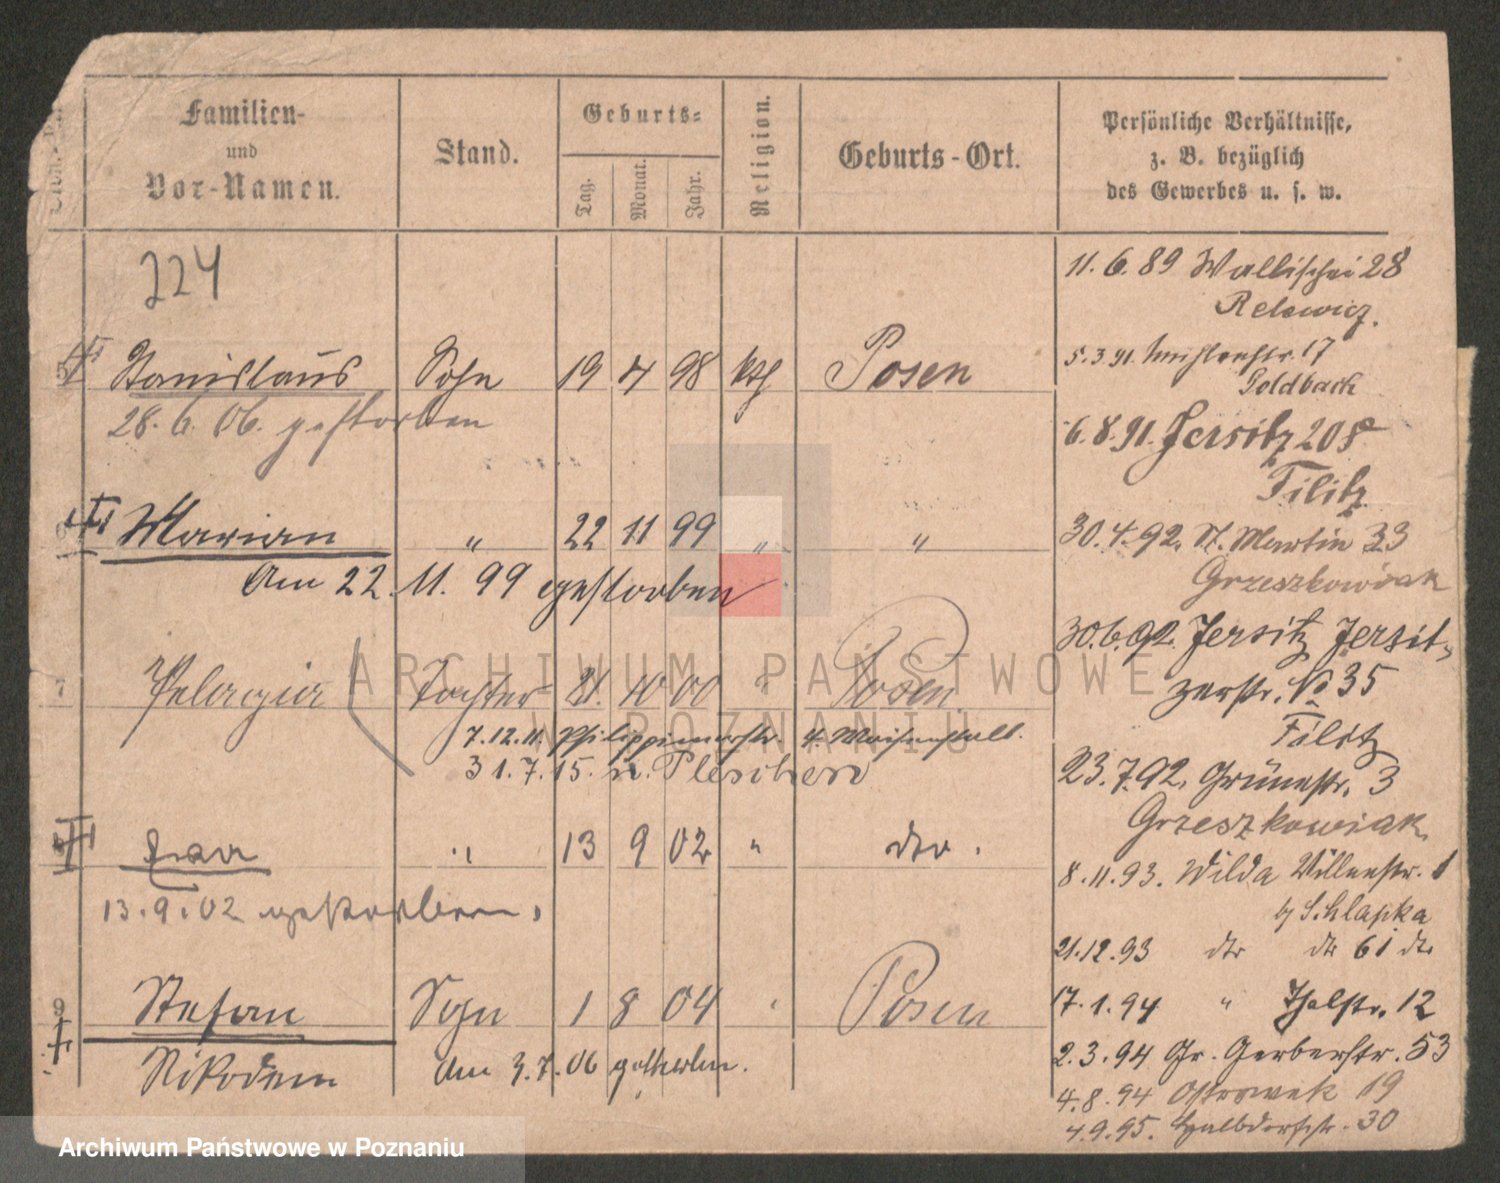 Familien- und Vor-Namen.
Stand.
Geburts-
Tag.
Monat.
Jahr.
Religion.
Geburts-Ort.
Persönliche Verhältnisse,
z. B. bezüglich
des Gewerbes u. s. w.
224
5 Stanislaus Sohn 19 4 98 kth Posen
28. 6. 06. gestorben
Marian " 22 11 99 " "
Am 22. 11. 99 gestorben
7 Pelagia Tochter 21. 10 00 " Posen
7.12.11. Philippinenstr. 4. Waisenstall.
31.7.15. n. Pleschen
" 13 9 02 " dto.
13.9.02 gestorben.
9 Stefan Sohn 1 8 04 " Posen
Nikodem Am 3.7.06 gestorben.
11.6.89 Wallischei 28
Relewicz.
5.3.91. Mühlenstr. 17
Goldbach
6.8.91. Jersitz 208
30.4.92. St. Martin 33
Grzeszkowiak
30.6.92. Jersitz Jersit-
zerstr. No 35
23.7.92. Grünestr. 3
Grzeszkowiak.
8.11.93. Wilda Villenstr. 1
b/ S. Chlapka
21.12.93 dto dto 61 dto
17.1.94 " Thalstr. 12
2.3.94 Gr. Gerberstr. 53
4.8.94 Ostrowek 19
4.9.95. Halbdorfstr. 30
ARCHIWUM PAŃSTWOWE
W POZNANIU
Archiwum Państwowe w Poznaniu